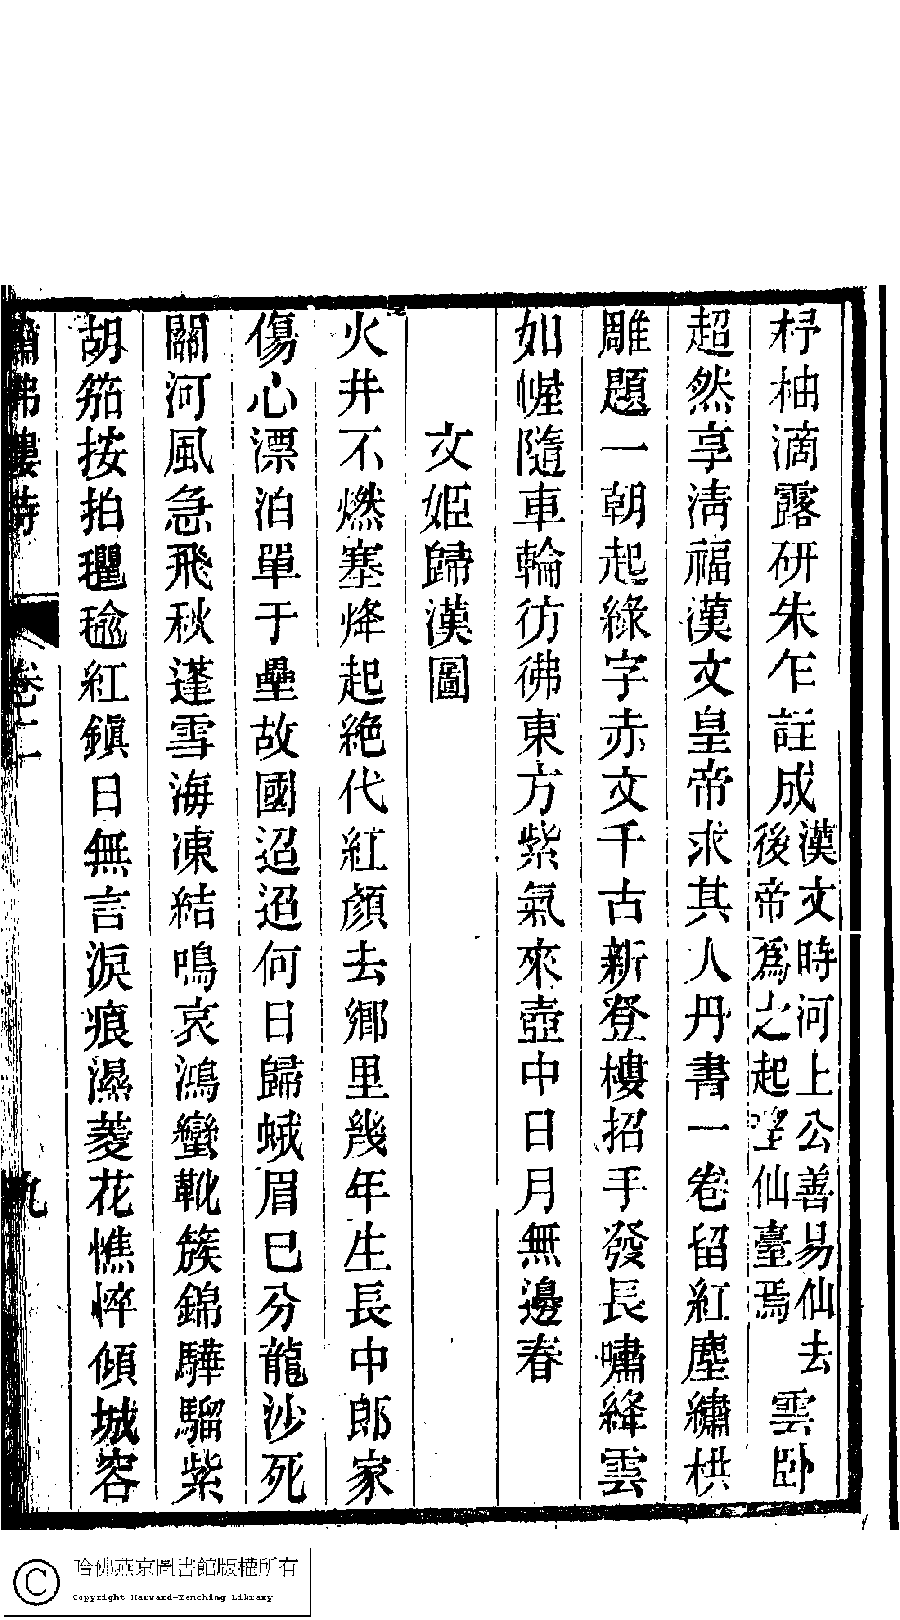 杍柚滴露研朱乍註成漢文時河上公善易仙去後帝爲之起望仙臺焉雲卧
超然享淸福漢文皇帝求其人丹書一卷留紅塵繡栱
雕題一朝起綠字赤文千古新登樓招手發長嘯絳雲
如幄隨車輪彷彿東方紫氣來壺中日月無邊春
文姬歸漢圖
火井不燃塞烽起絕代紅顏去鄉里幾年生長中郎家
傷心漂泊單于壘故國迢迢何日歸蛾眉已分龍沙死
關河風急飛秋蓬雪海凍結鳴哀鴻蠻靴簇錦驊騮紫
胡笳按拍氍毹紅鎮日無言淚痕濕菱花憔悴傾城容
樓詩
卷二
九
哈佛燕京圖書館版權所有
Copyright Harvard-Yenching Library